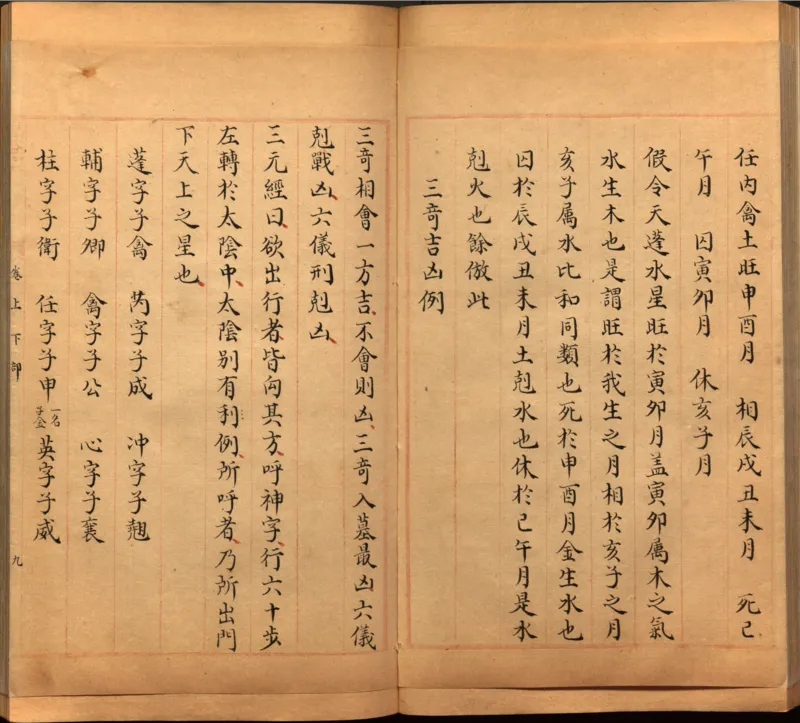 任内禽土旺申酉月　相辰戌丑未月　死巳
午月　囚寅卯月　休亥子月
假令天蓬水星旺於寅卯月盖寅卯属木之氣
水生木也是謂旺於我生之月相於亥子之月
亥子属水比和同類也死於申酉月金生水也
囚於辰戌丑未月土剋水也休於巳午月是水
剋火也餘倣此
三竒吉凶例
三竒相會一方吉不會則凶三竒入墓最凶六儀
剋戰凶六儀刑剋凶
三元經曰欲出行者皆向其方呼神字行六十步
左轉於太陰中太陰别有利例所呼者乃所出門
下天上之星也
蓬字子禽　芮字子成　冲字子翹
輔字子卿　禽字子公　心字子襄
柱字子衛　任字子申一名子金　英字子威
卷上　下部　九